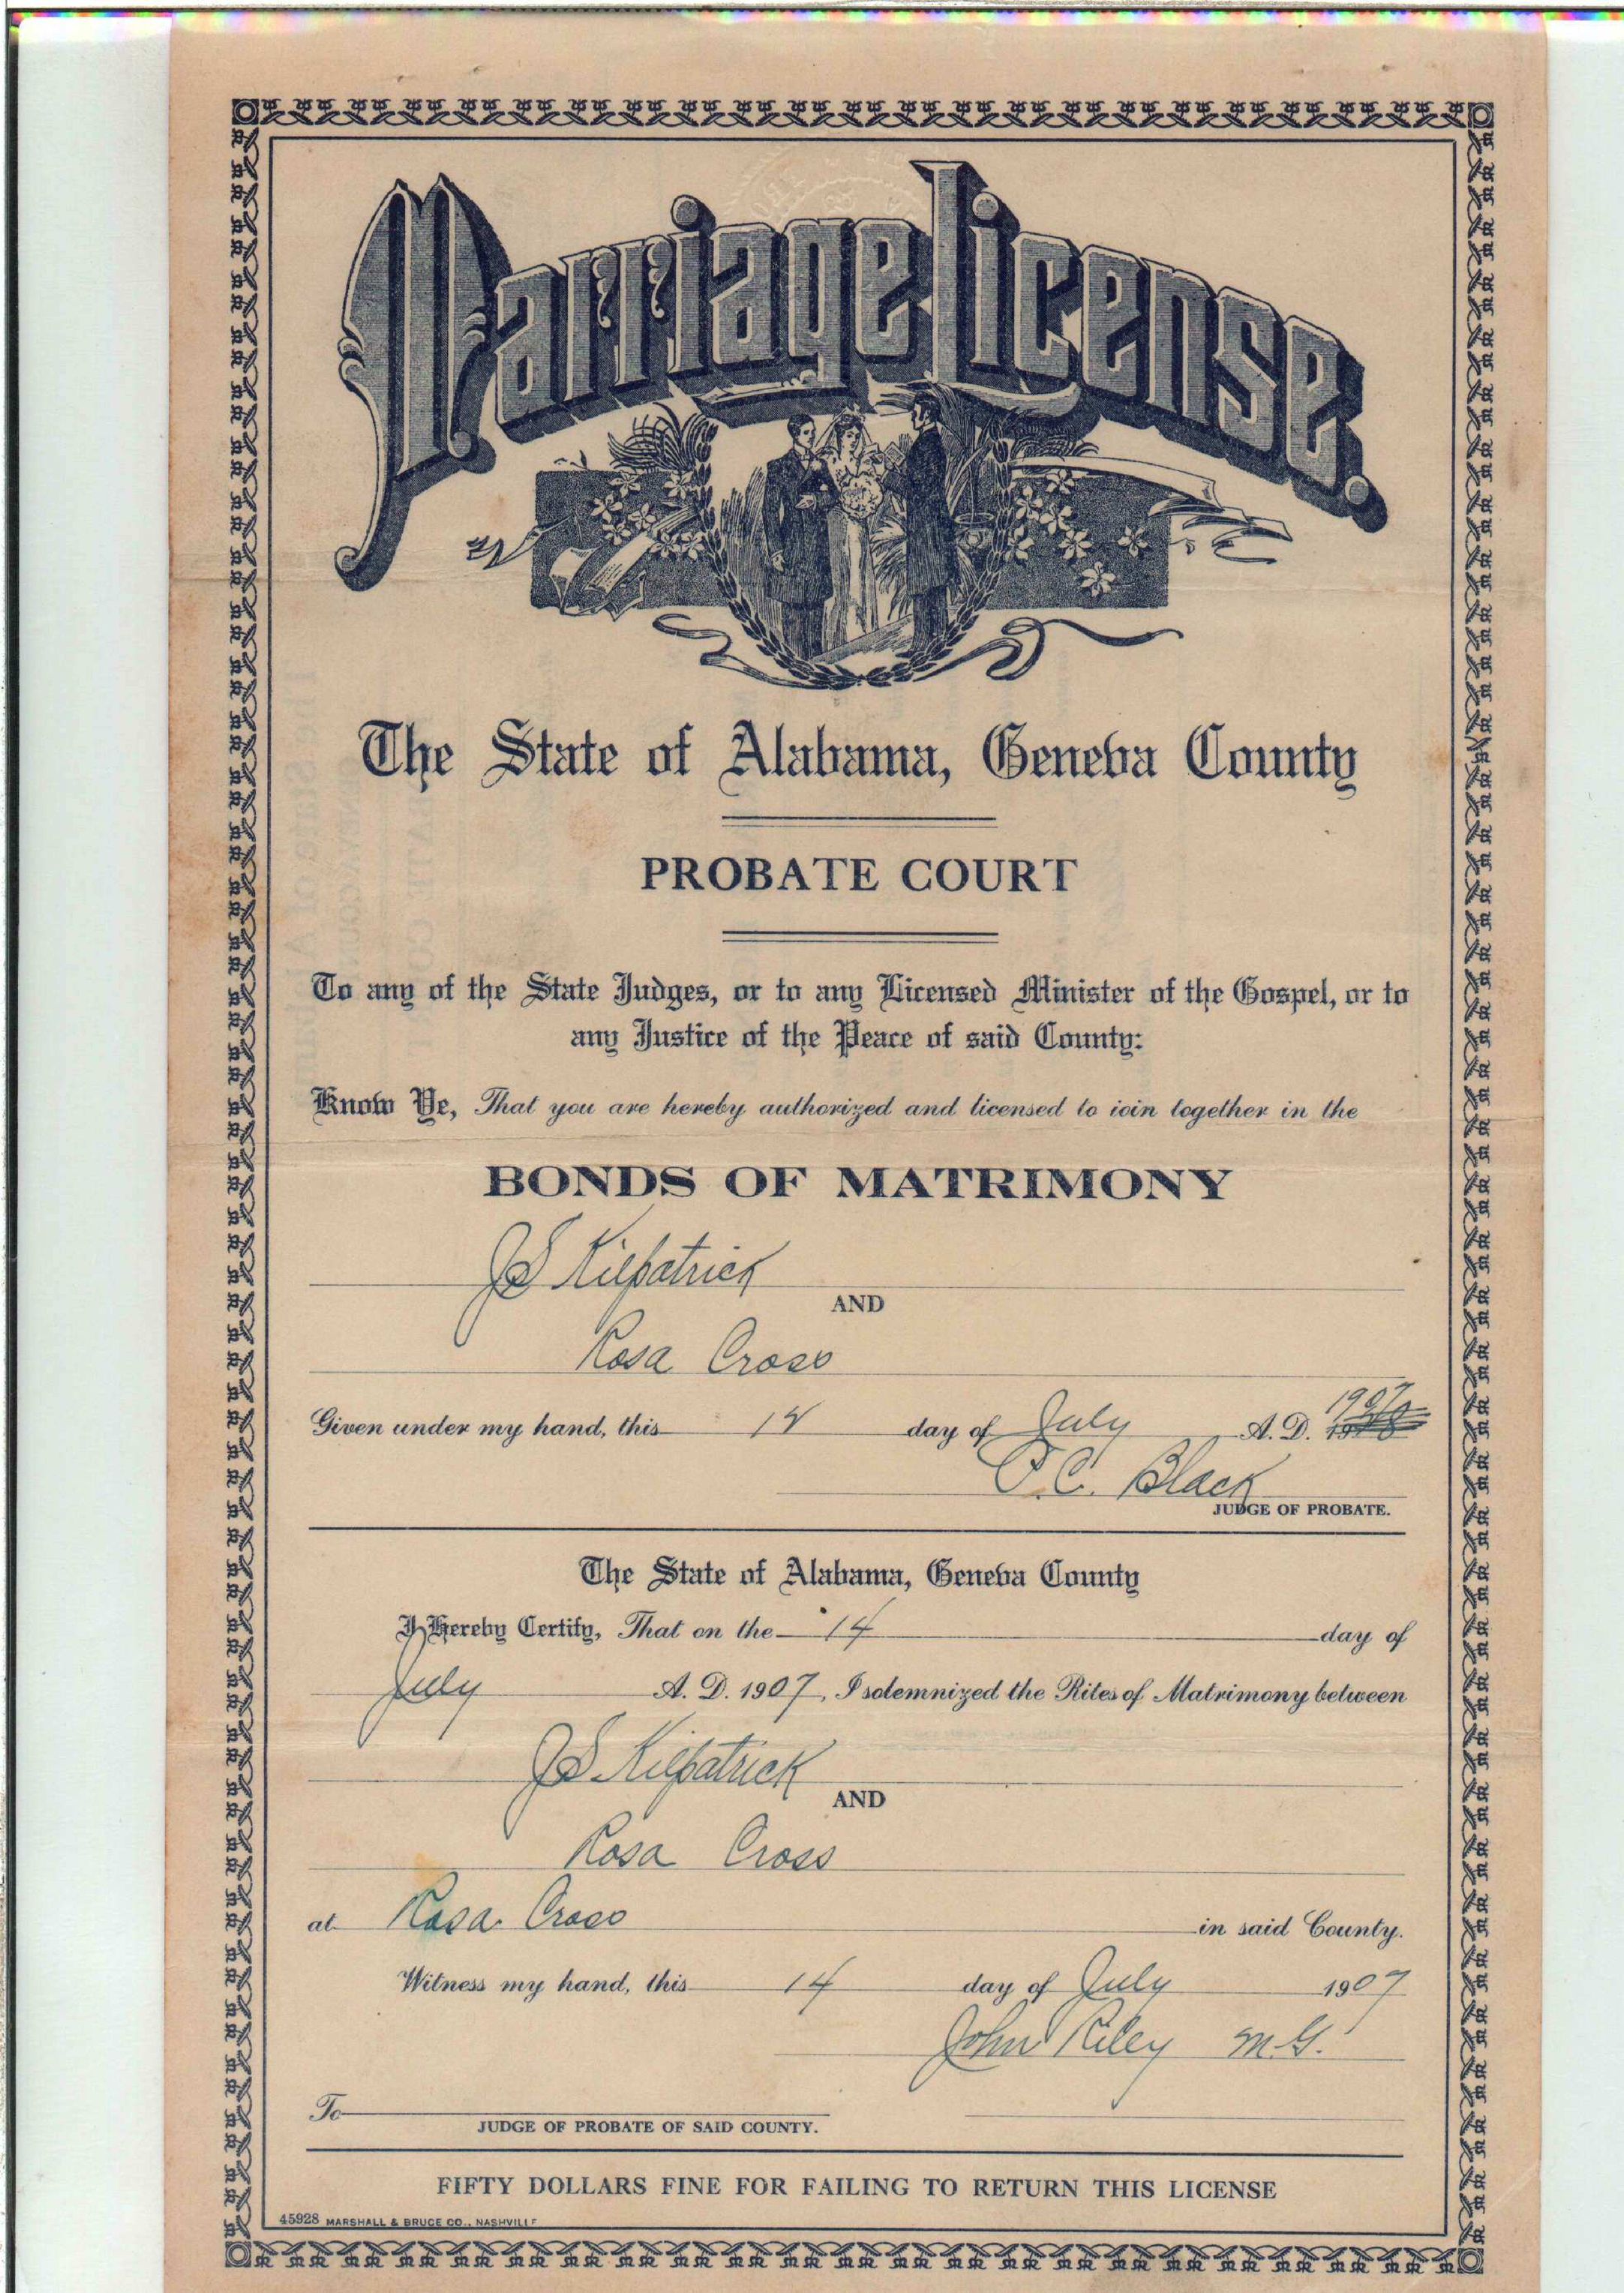 Marriage License.
The State of Alabama, Geneva County
PROBATE COURT
To any of the State Judges, or to any Licensed Minister of the Gospel, or to
any Justice of the Peace of said County:
Know Ye, That you are hereby authorized and licensed to join together in the
BONDS OF MATRIMONY
JS Kilpatrick
AND
Rosa Cross
Given under my hand, this 12 day of July A. D. 1907
P.C. Black
JUDGE OF PROBATE.
The State of Alabama, Geneva County
I Hereby Certify, That on the 14 day of
July A. D. 1907, I solemnized the Rites of Matrimony between
JS Kilpatrick
AND
Rosa Cross
at Rosa Cross in said County.
Witness my hand, this 14 day of July 1907
John Riley M.G.
To
JUDGE OF PROBATE OF SAID COUNTY.
FIFTY DOLLARS FINE FOR FAILING TO RETURN THIS LICENSE
45928 MARSHALL & BRUCE CO., NASHVILLE